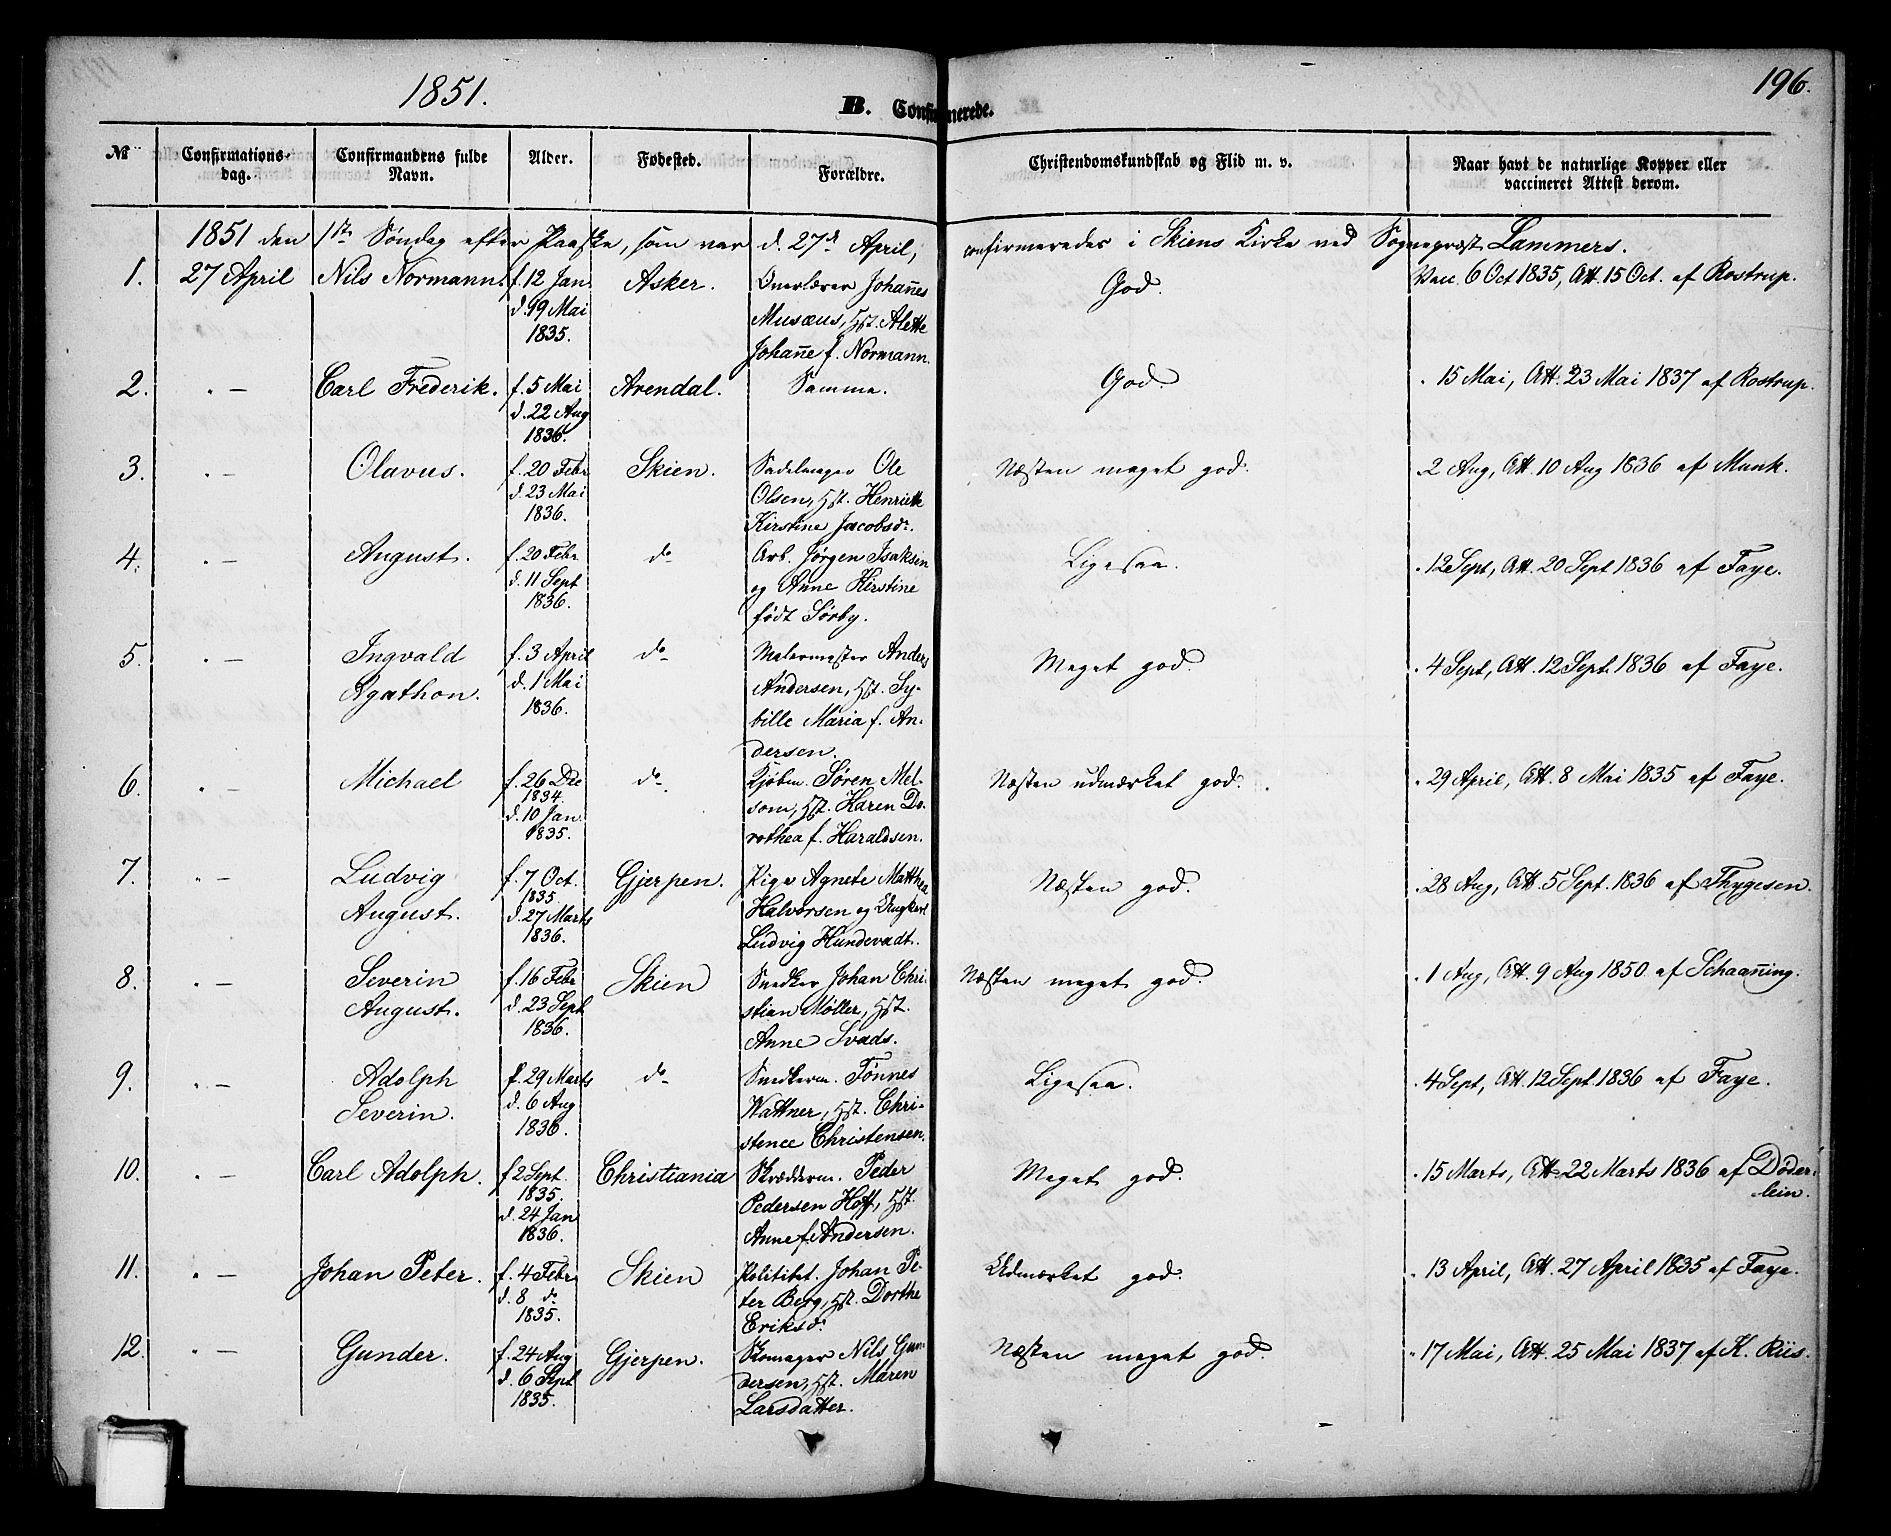 1851.
B. Confirmerede.
196.
№
Confirmations-
dag.
Confirmandens fulde
Navn.
Alder.
Fødested.
Forældre.
Christendomskundskab og Flid m. v.
Naar havt de naturlige Kopper eller
vaccineret Attest derom.
1851 den 1ste Søndag efter Paaske, som var d. 27d April, confirmeredes i Skiens Kirke ved Sognepræst Lammers.
1. 27 April Nils Normann. f. 12 Jan Asker. Overlærer Johan̄es God. Vacc. 6 Oct 1835, Att. 15 Oct. af Rostrup.
d. 19 Mai Musæus, Hst. Alette
1835. Johan̄e f. Normann.
2. " — Carl Frederik. f. 5 Mai Arendal. Samme. God. " 15 Mai, Att. 23 Mai 1837 af Rostrup.
d. 22 Aug
1836.
3. " — Olavus. f. 20 Febr Skien. Sadelmager Ole Næsten meget god. " 2 Aug, Att. 10 Aug 1836 af Munk.
d. 23 Mai Olsen, Hst. Henriette
1836. Kirstine Jacobsdr.
4. " — August. f. 20 Febr do Arb. Jørgen Isaksen Ligesaa. " 12 Sept, Att. 20 Sept 1836 af Faye.
d. 11 Sept og Anne Kirstine
1836. født Sørby.
5. " — Ingvald f. 3 April do Malermester Anders Meget god. " 4 Sept, Att. 12 Sept. 1836 af Faye.
Agathon. d. 1 Mai Andersen, Hst. Sy-
1836. bille Maria f. An-
dersen.
6. " — Michael f. 26 Dec do Kjøbm. Søren Mel- Næsten udmærket god. " 29 April, Att. 8 Mai 1835 af Faye.
1834. som, Hst. Karen Do-
d. 10 Jan rothea f. Haraldsen.
1835.
7. " — Ludvig f. 7 Oct. Gjerpen. Pige Agnete Matthea Næsten god. " 28 Aug, Att. 5 Sept. 1836 af Thygesen.
1835
August. d. 27 Marts Halvorsen og Ungkarl
1836. Ludvig Hundevadt.
8. " — Severin f. 16 Febr Skien Snedker Johan Chri- Næsten meget god. " 1 Aug, Att. 9 Aug 1850 af Schaan̄ing.
August. d. 23 Sept stian Møller, Hst.
1836. Anne Svads.
9. " — Adolph f. 29 Marts do Snedkerm. Tønnes Ligesaa. " 4 Sept, Att. 12 Sept. 1836 af Faye.
Severin. d. 6 Aug Wattner, Hst. Chri-
1836. stence Christensen.
10. " — Carl Adolph. f. 2 Sept. Christiania Skrædderm. Peder Meget god. " 15 Marts, Att. 22 Marts 1836 af Døder-
1835. lein.
d. 24 Jan Pedersen Hoff, Hst.
1836. Anne f. Andersen.
11. " — Johan Peter. f. 4 Febr Skien Politibet. Johan Pe- Udmærket god. " 13 April, Att. 27 April 1835 af Faye.
d. 8 do ter Berg, Hst. Dorthe
1835. Eriksdr
12. " — Gunder. f. 24 Aug Gjerpen. Skomager Nils Gun- Næsten meget god. " 17 Mai, Att. 25 Mai 1837 af K. Riis.
d. 6 Sept dersen, Hst. Maren
1835. Larsdatter.